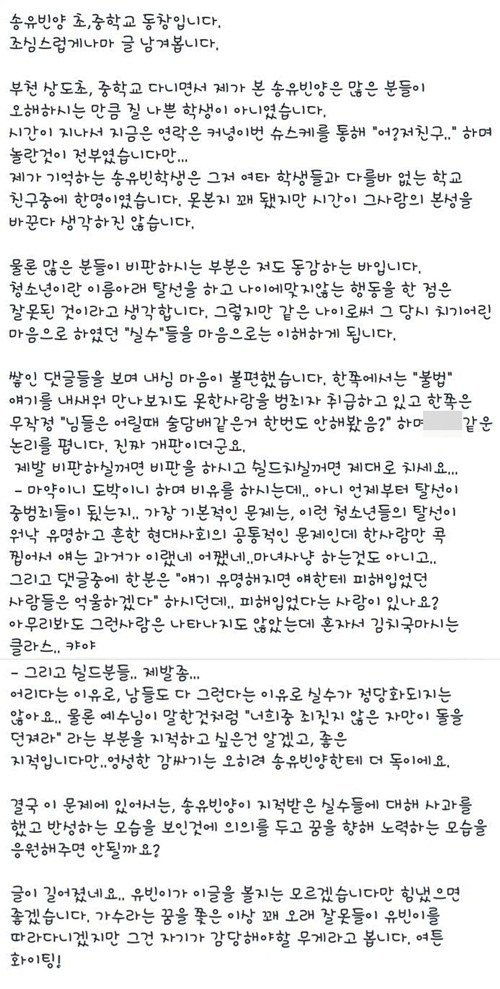 송유빈양 초,중학교 동창입니다.
조심스럽게나마 글 남겨봅니다.
부천 상도초, 중학교 다니면서 제가 본 송유빈양은 많은 분들이
오해하시는 만큼 질 나쁜 학생이 아니였습니다.
시간이 지나서 지금은 연락은 커녕이번 슈스케를 통해 "어?저친구.." 하며
놀란것이 전부였습니다만...
제가 기억하는 송유빈학생은 그저 여타 학생들과 다를바 없는 학교
친구중에 한명이였습니다. 못본지 꽤 됐지만 시간이 그사람의 본성을
바꾼다 생각하진 않습니다.
물론 많은 분들이 비판하시는 부분은 저도 동감하는 바입니다.
청소년이란 이름아래 탈선을 하고 나이에맞지않는 행동을 한 점은
잘못된 것이라고 생각합니다. 그렇지만 같은 나이로써 그 당시 치기어린
마음으로 하였던 "실수"들을 마음으로는 이해하게 됩니다.
쌓인 댓글들을 보며 내심 마음이 불편했습니다. 한쪽에서는 "불법"
얘기를 내새워 만나보지도 못한사람을 범죄자 취급하고 있고 한쪽은
무작정 "님들은 어릴때 술담배같은거 한번도 안해봤음?" 하며 같은
논리를 폅니다. 진짜 개판이더군요.
제발 비판하실꺼면 비판을 하시고 쉴드치실꺼면 제대로 치세요...
- 마약이니 도박이니 하며 비유를 하시는데.. 아니 언제부터 탈선이
중범죄들이 됐는지.. 가장 기본적인 문제는, 이런 청소년들의 탈선이
워낙 유명하고 흔한 현대사회의 공통적인 문제인데 한사람만 콕
찝어서 얘는 과거가 이랬네 어쨌네..마녀사냥 하는것도 아니고..
그리고 댓글중에 한분은 "얘기 유명해지면 얘한테 피해입었던
사람들은 억울하겠다" 하시던데.. 피해입었다는 사람이 있나요?
아무리봐도 그런사람은 나타나지도 않았는데 혼자서 김칫국마시는
클라스.. 캬야
- 그리고 쉴드분들.. 제발좀...
어리다는 이유로, 남들도 다 그런다는 이유로 실수가 정당화되지는
않아요.. 물론 예수님이 말한것처럼 "너희중 죄짓지 않은 자만이 돌을
던져라" 라는 부분을 지적하고 싶은건 알겠고, 좋은
지적입니다만..엉성한 감싸기는 오히려 송유빈양한테 더 독이에요.
결국 이 문제에 있어서는, 송유빈양이 지적받은 실수들에 대해 사과를
했고 반성하는 모습을 보인것에 의의를 두고 꿈을 향해 노력하는 모습을
응원해주면 안될까요?
글이 길어졌네요.. 유빈이가 이글을 볼지는 모르겠습니다만 힘냈으면
좋겠습니다. 가수라는 꿈을 쫓은 이상 꽤 오래 잘못들이 유빈이를
따라다니겠지만 그건 자기가 감당해야할 무게라고 봅니다. 여튼
화이팅!